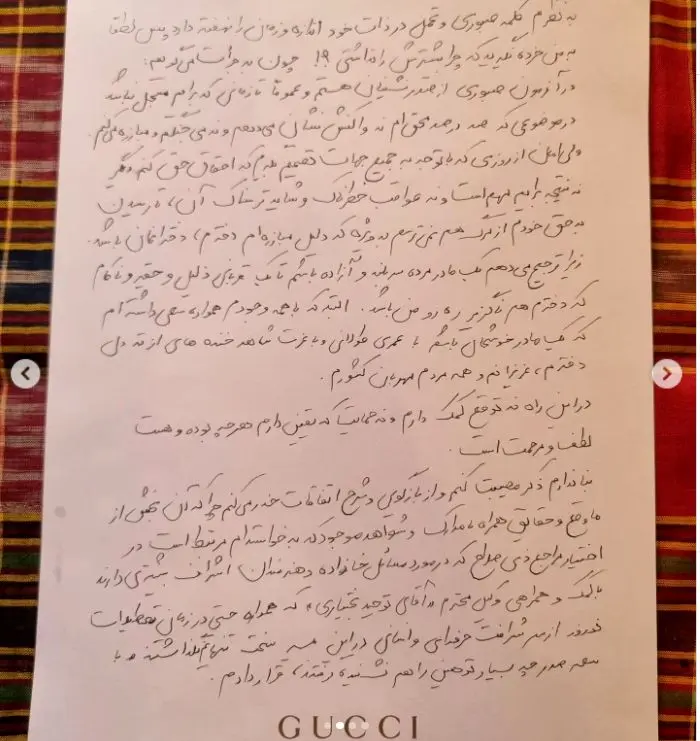 به نظرم کلمه صبوری و تحمل در ذات خود اندازه و زمانی را نهفته دارد پس لطفا
به من خرده نگیرید که چرا بیشترش را نداشتی ؟! چون به جرات می گویم:
در آزمون صبوری از صدر نشینان هستم و عموماً تا زمانی که برایم مسجل نباشد
در موضوعی که صد درصد محق ام نه واکنش نشان می دهم و نه می جنگم و مبارزه می کنم.
ولی امان از روزی که با توجه به جمیع جهات تصمیم بگیرم که احقاق حق کنم دیگر
نه نتیجه برایم مهم است و نه عواقب خطرناک و شاید ترسناک آن، تا رسیدن
به حق خودم از مرگ هم نمی ترسم به ویژه که دلیل مبارزه ام دخترم، دخترانمان باشد.
زیرا ترجیح می دهم یک مادر مرده سربلند و آزاده باشم تا یک قربانی ذلیل و حقیر و ناکام
که دخترم هم ناگزیر ره رو من باشد. البته که با همه وجودم همواره سعی داشته ام
که یک مادر خوشحال باشم با عمری طولانی و باعزت شاهد خنده های از ته دل
دخترم، عزیزانم و همه مردم مهربان کشورم.
در این راه نه توقع کمک دارم و نه حمایت که یقین دارم هر چه بوده و هست
لطف و مرحمت است.
بنا ندارم ذکر مصیبت کنم و از بازگویی و شرح اتفاقات حذر می کنم چرا که آن بخش از
ماوقع و حقایق همراه با مدارک و شواهد موجود که به خواسته ام مرتبط است در
اختیار مراجع ذی صلاح که در مورد مسائل خانواده و هنرمندان اشراف بیشتری دارند
با کمک و همراهی وکیل محترم «آقای توحید بختیاری» که همواره حتی در زمان تعطیلات
نوروز از سر شرافت حرفه ای و انسانی در این مسیر سخت تنهایم نگذاشتند و با
سعه صدر چه بسیار توهینی را هم نشنیده گرفتند، قرار دادم.
GUCCI